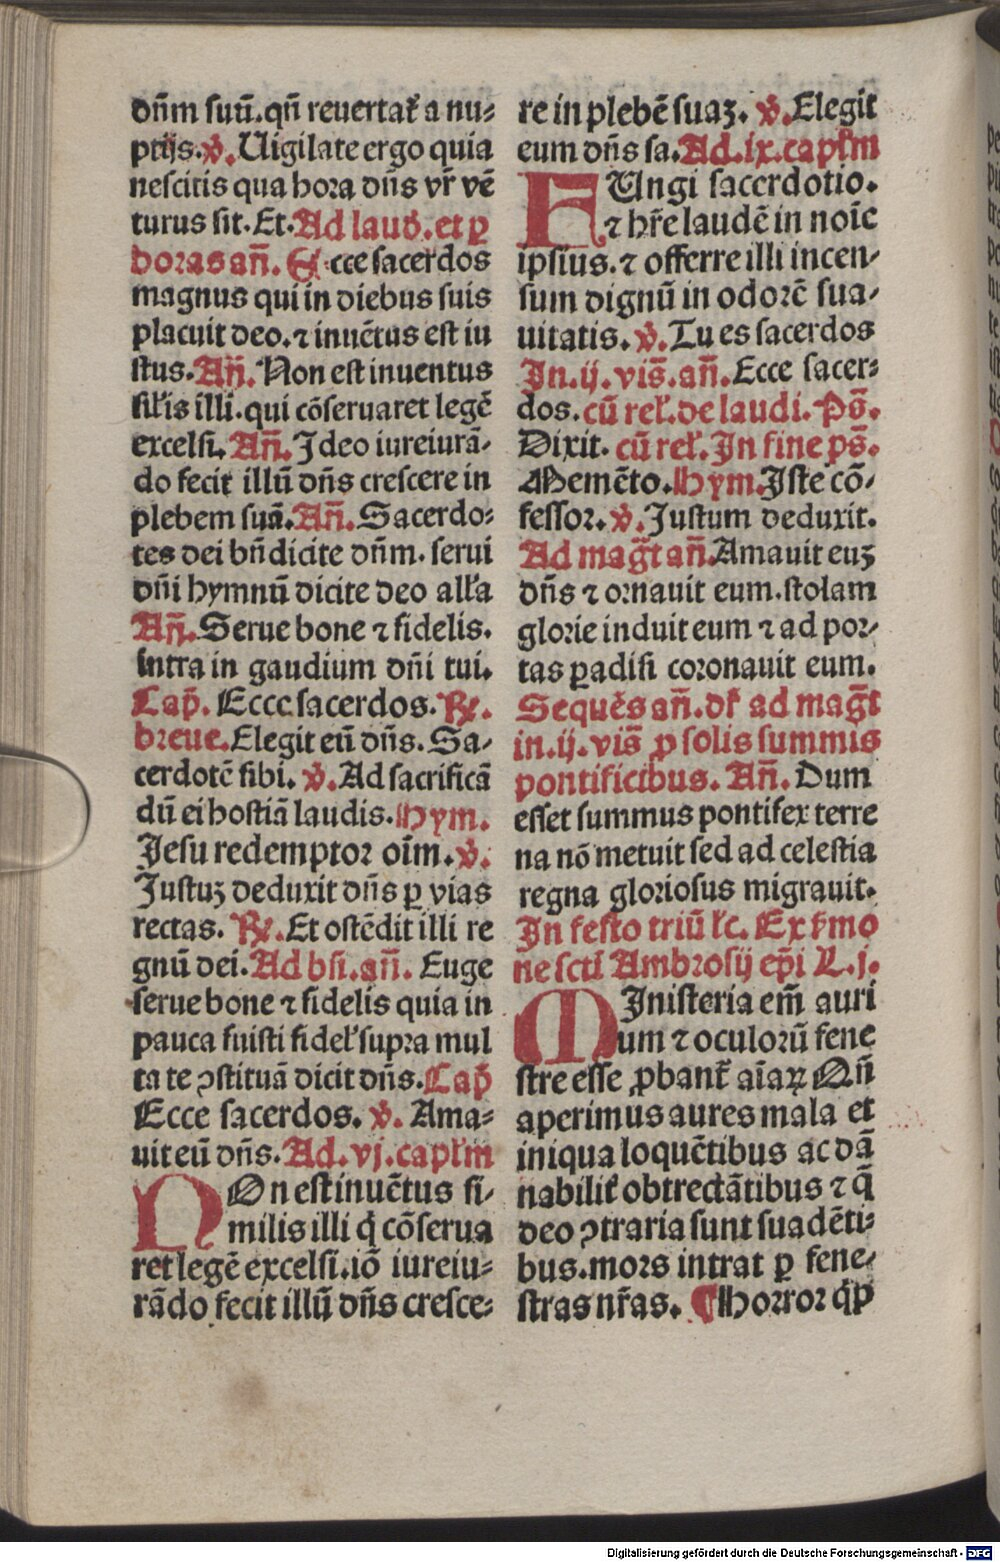 dn̄m suū.qn̄ reuertat᷑ a nu⸗
ptijs.v̇.Uigilate ergo quia
nescitis qua hora dn̄s vr̄ vē
turus sit.Et.Ad laud̾.et ꝑ
horas an̄.Ecce sacerdos
magnus qui in diebus suis
placuit deo.⁊ inuētus est iu
stus.An̄.Non est inuentus
sil̓is illi.qui cōseruaret legē
excelsi.An̄.Ideo iureiurā⸗
do fecit illū dn̄s crescere in
plebem suā.An̄.Sacerdo⸗
tes dei bn̄dicite dn̄m.serui
dn̄i hymnū dicite deo all̓a
An̄.Serue bone ⁊ fidelis.
intra in gaudium dn̄i tui.
Cap̄.Ecce sacerdos.℞.
breue.Elegit eū dn̄s.Sa⸗
cerdotē sibi.v̇.Ad sacrificā
dū ei hostiā laudis.Hym.
Jesu redemptor oīm.v̇.
Justuꝫ deduxit dn̄s ꝑ vias
rectas.℞.Et ostēdit illi re
gnū dei.Ad bn̄.an̄.Euge
serue bone ⁊ fidelis quia in
pauca fuisti fidel̓ supra mul
ta te ꝯstituā dicit dn̄s.Cap̄
Ecce sacerdos.v̇.Ama⸗
uit eū dn̄s.Ad.vj.capl̓m
NOn est inuētus si⸗
milis illi q̇ cōserua
ret legē excelsi.iō iureiu⸗
rādo fecit illū dn̄s cresce⸗
re in plebē suaꝫ.v̇.Elegit
eum dn̄s sa.Ad.ix.capl̓m
FUngi sacerdotio.
⁊ hr̄e laudē in noīe
ipsius.⁊ offerre illi incen⸗
sum dignū in odorē sua⸗
uitatis.v̇.Tu es sacerdos
In.ij.vis̄.an̄.Ecce sacer⸗
dos.cū rel̓.de laudi.Ps̄.
Dixit.cū rel̓.In fine ps̄.
Memēto.Hym.Iste cō⸗
fessor.v̇.Justum deduxit.
Ad mag̅t an̄.Amauit euꝫ
dn̄s ⁊ ornauit eum.stolam
glorie induit eum ⁊ ad por⸗
tas ꝑadisi coronauit eum.
Sequēs an̄.dr̄ ad mag̅t
in.ij.vis̄ ꝓ solis summis
pontificibus.An̄.Dum
esset summus pontifex terre
na nō metuit sed ad celestia
regna gloriosus migrauit.
In festo triū lc̄.Ex s̓mo
ne scti Ambrosij ep̄i L.j.
MInisteria em̄ auri
um ⁊ oculorū fene
stre esse ꝓbant᷑ aīaꝝ Qn̄
aperimus aures mala et
iniqua loquētibus ac dā
nabilit᷑ obtrectātibus ⁊ q̄
deo ꝯtraria sunt suadēti⸗
bus.mors intrat ꝑ fene⸗
stras nr̄as.¶Horror q̇ꝑ
Digitalisierung gefördert durch die Deutsche Forschungsgemeinschaft - DFG